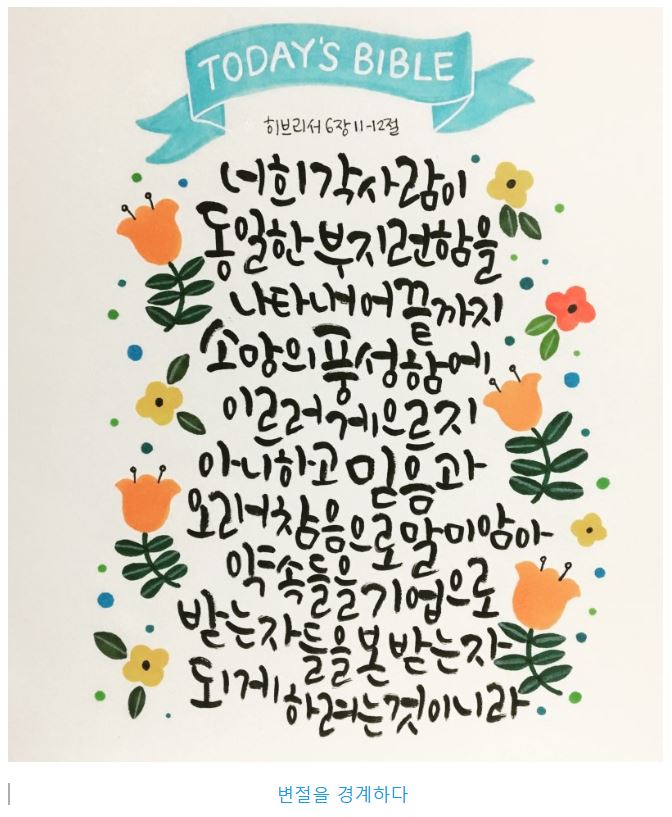 TODAY'S BIBLE
히브리서 6장 11-12절
너희 각 사람이
동일한 부지런함을
나타내어 끝까지
소망의 풍성함에
이르러 게으르지
아니하고 믿음과
오래 참음으로 말미암아
약속들을 기업으로
받는 자들을 본받는 자
되게 하려는 것이니라
변절을 경계하다